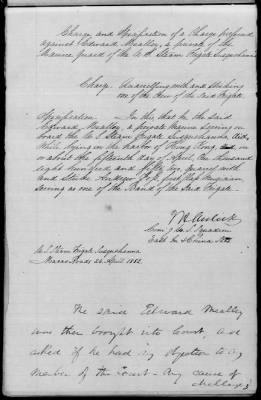 Charge and Specification of a Charge preferred
against Edward Mealley, a private of the
Marine guard of the U.S. Steam Frigate Susquehanna
Charge. Quarrelling with and striking
one of the Crew of the said Frigate.
Specification. In this that he the said
Edward Mealley, a private Marine serving on
board the U.S. Steam Frigate Susquehanna, did,
while lying in the harbor of Hong Kong, on
or about the fifteenth day of April, One thousand
eight hundred and fifty two, quarrel with
and strike first Class Musician
serving as one of the Band of the said Frigate.
J H Aulick
Com'g U.S. Squadron
East In. & China Seas
U.S. Steam Frigate Susquehanna
Macao Roads 26 April 1852.
The said Edward Mealley
was then brought into Court, and
asked if he had any objection to any
member of the Court - Any cause of